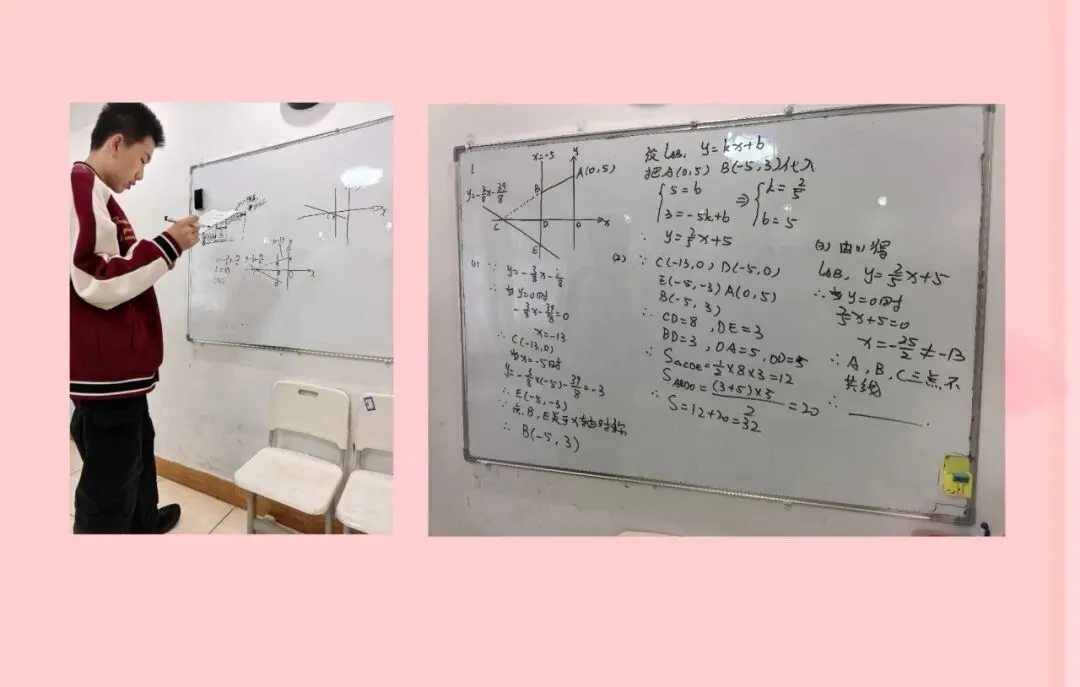 1
x=-5
y
A(0,5)
y=-3/8x-39/8
B
C
D
O
x
E
(1) ∵ y=-3/8x-39/8
∴ 当y=0时
-3/8x-39/8=0
x=-13
∴ C(-13,0)
当x=-5时
y=-3/8×(-5)-39/8=-3
∴ E(-5,-3)
∵ 点B,E关于x轴对称
∴ B(-5,3)
设lAB: y=kx+b
把A(0,5) B(-5,3)代入
{5=b
3=-5k+b
⇒ {k=2/5
b=5
∴ y=2/5x+5
(2) ∵ C(-13,0) D(-5,0)
E(-5,-3) A(0,5)
B(-5,3)
∴ CD=8, DE=3
BD=3, OA=5, OD=5
∴ S△CDE=1/2×8×3=12
SABDO=(3+5)×5/2=20
∴ S=12+20=32
(3) 由(1)得
lAB: y=2/5x+5
∴当y=0时
2/5x+5=0
x=-25/2≠-13
∴ A,B,C三点不
共线
∴